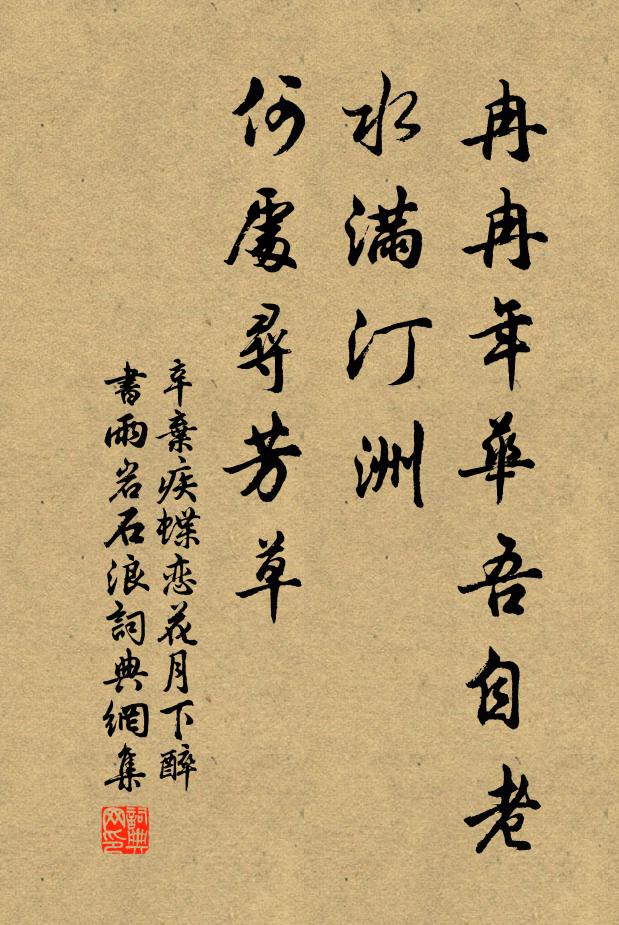 冉冉年華吾自老
水滿汀洲
何處尋芳草
辛棄疾蝶恋花月下醉
書雨岩石浪詞典網集
詞典网印